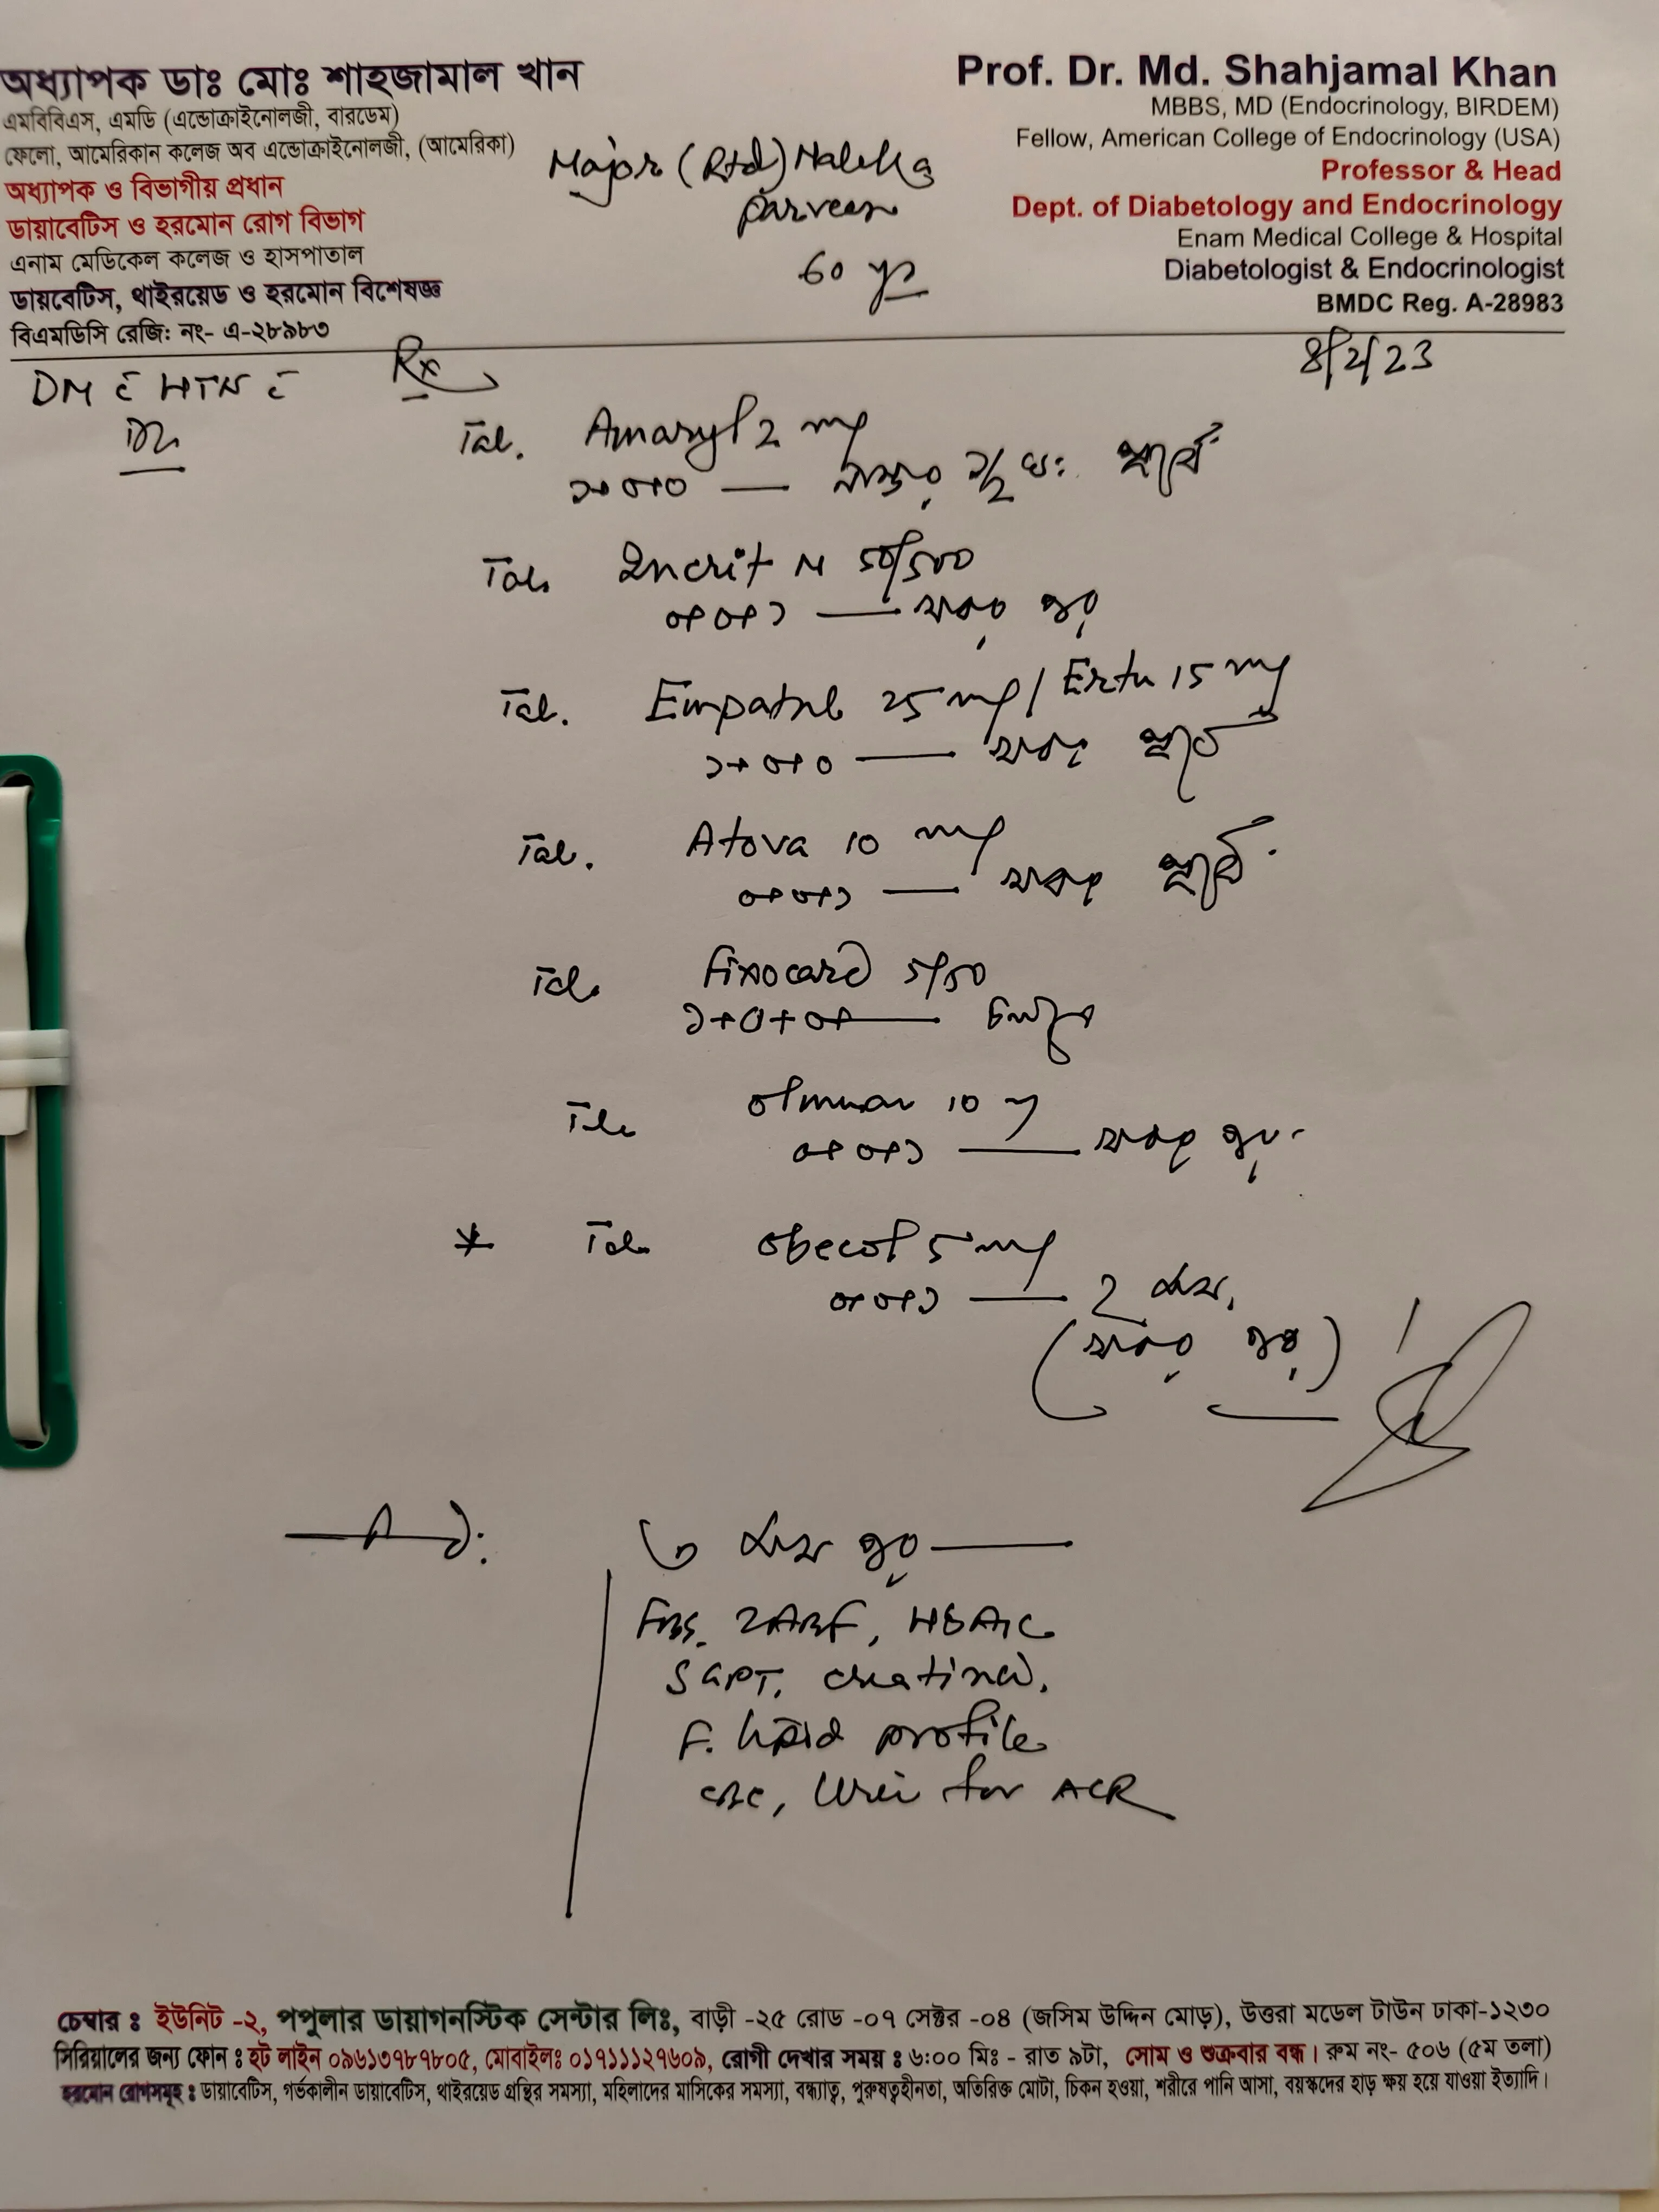 অধ্যাপক ডাঃ মোঃ শাহজামাল খান
এমবিবিএস, এমডি (এন্ডোক্রাইনোলজী, বারডেম)
ফেলো, আমেরিকান কলেজ অব এন্ডোক্রাইনোলজী, (আমেরিকা)
অধ্যাপক ও বিভাগীয় প্রধান
ডায়াবেটিস ও হরমোন রোগ বিভাগ
এনাম মেডিকেল কলেজ ও হাসপাতাল
ডায়বেটিস, থাইরয়েড ও হরমোন বিশেষজ্ঞ
বিএমডিসি রেজি: নং- এ-২৮৯৮৩
Major (Rtd)
Parveen
60 yrs
Prof. Dr. Md. Shahjamal Khan
MBBS, MD (Endocrinology, BIRDEM)
Fellow, American College of Endocrinology (USA)
Professor & Head
Dept. of Diabetology and Endocrinology
Enam Medical College & Hospital
Diabetologist & Endocrinologist
BMDC Reg. A-28983
8/2/23
DM c̄ HTN c̄
Rx
Tab. Amaryl 2 mg
১+০+০ — নাস্তার ১/২ ঘঃ পূর্বে
Tab. Incrit M 50/500
০+০+১ — খাবার পর
Tab. 25 mg / Ertu 15 mg
১+০+০ — খাবার পূর্বে
Tab. Atova 10 mg
০+০+১ — খাবার পূর্বে
Tab. Fixocard 5/50
১+০+০ — চলবে
Tab. 10
০+০+১ — খাবার পর
* Tab. Obecol 5 mg
০+০+১ — ২ মাস
(খাবার পর)
৩ মাস পর —
FBS, 2ABF, HbA1C
SGPT, creatinine,
F. lipid profile
CBC, Urine for ACR
চেম্বার ঃ ইউনিট -২, পপুলার ডায়াগনস্টিক সেন্টার লিঃ, বাড়ী -২৫ রোড -০৭ সেক্টর -০৪ (জসিম উদ্দিন মোড়), উত্তরা মডেল টাউন ঢাকা-১২৩০
সিরিয়ালের জন্য ফোন ঃ হট লাইন ০৯৬১৩৭৮৭৮০৫, মোবাইলঃ ০১৭১১১২৭৬০৯, রোগী দেখার সময় ঃ ৬:০০ মিঃ - রাত ৯টা, সোম ও শুক্রবার বন্ধ। রুম নং- ৫০৬ (৫ম তলা)
হরমোন রোগসমূহ ঃ ডায়াবেটিস, গর্ভকালীন ডায়াবেটিস, থাইরয়েড গ্রন্থির সমস্যা, মহিলাদের মাসিকের সমস্যা, বন্ধ্যাত্ব, পুরুষত্বহীনতা, অতিরিক্ত মোটা, চিকন হওয়া, শরীরে পানি আসা, বয়স্কদের হাড় ক্ষয় হয়ে যাওয়া ইত্যাদি।